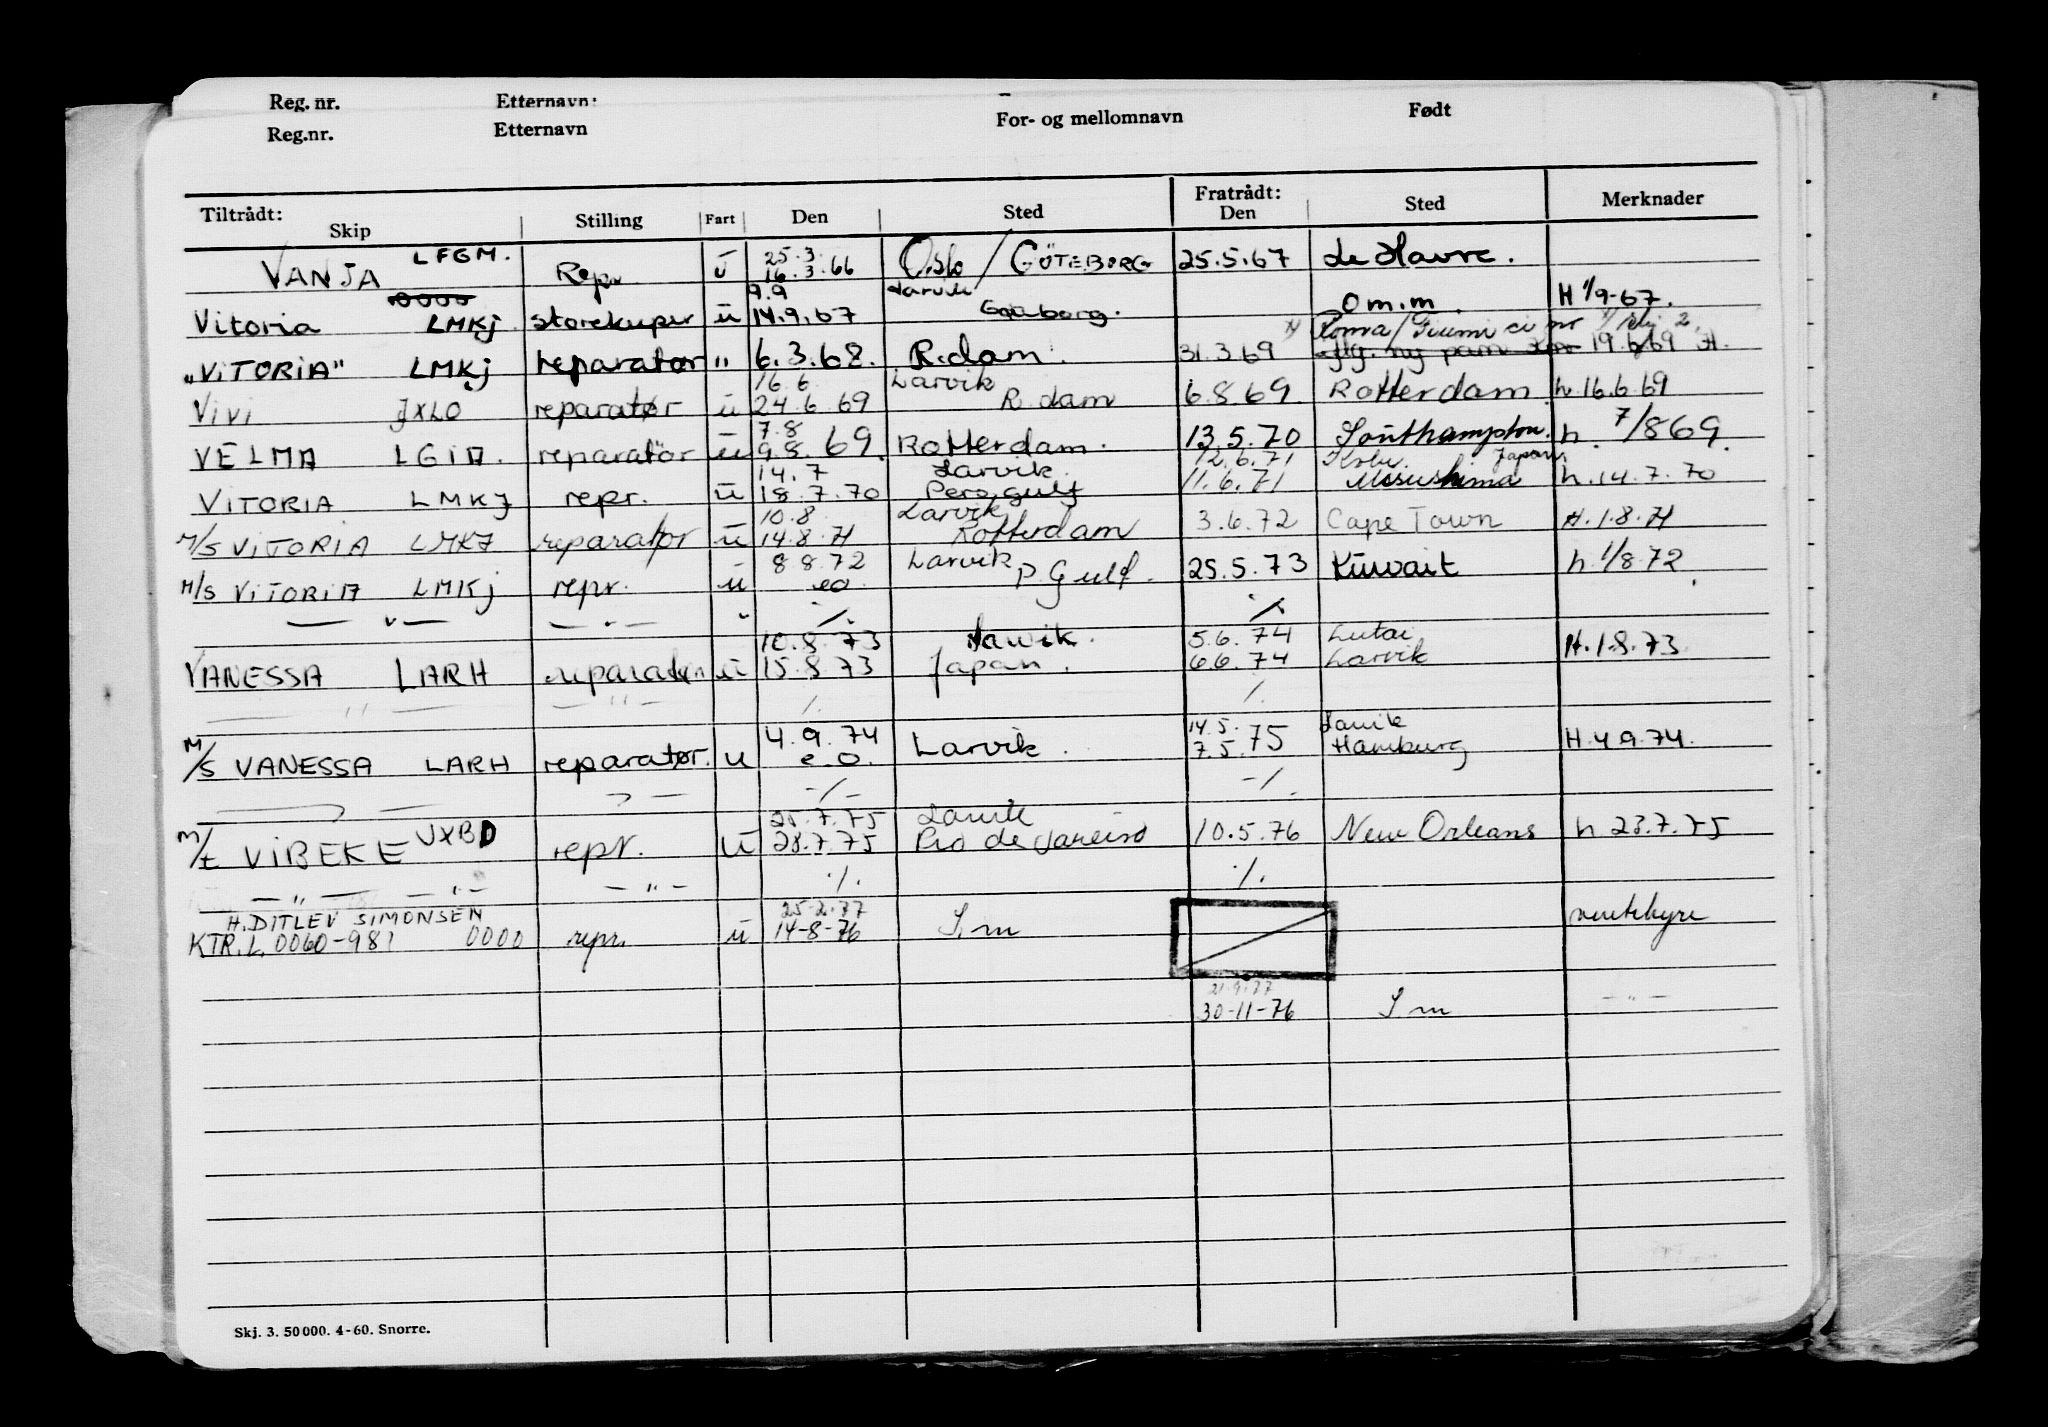 Reg. nr. Etternavn:
Reg.nr. Etternavn For- og mellomnavn Født
Tiltrådt: Fratrådt:
Skip Stilling Fart Den Sted Den Sted Merknader
LFGM. 25.3
VANJA Repr u 16.3.66 Oslo / GÖTEBORG 25.5.67 Le Havre.
0000 9.9 Larvik
Vitoria LMKj storekeper u 14.9.67 Gøteborg. om.m. H 1/9-67.
"VITORIA" LMKj reparatør " 6.3.68. R.dam. 31.3.69 19.6.69 H.
16.6 Larvik
Vivi JXLO reparatør u 24.6.69 R.dam 6.8.69. Rotterdam h.16.6.69
7.8
VELMA LGIA. reparatør u 9.8.69. Rotterdam. 13.5.70 Southampton. h. 7/869.
14.7 Larvik. 12.6.71 Kobe. Japan.
VITORIA LMKJ repr. u 18.7.70 Pers.gulf 11.6.71 h.14.7.70
10.8 Larvik
M/S VITORIA LMKJ reparatør u 14.8.71 Rotterdam 3.6.72 Cape Town H.1.8.71
8 8.72 Larvik
M/S VITORIA LMKj repr. u eo P Gulf. 25.5.73 Kuwait h.1/8.72
— " — — " — " ./. ./.
10.8.73 Larvik. 5.6.74
VANESSA LARH reparatør u 15.8.73 Japan. 6.6.74 Larvik H.1.8.73
— " — — " — /. /.
4.9.74 14.5. Larvik
M/S VANESSA LARH reparatør. u e.o. Larvik. 7.5.75 Hamburg H.4 9.74.
-/- -/.
Larvik
M/t VIBEKE JXBD repr. u 28.7.75 Rio de Janeiro 10.5.76 New Orleans h 23.7.75
— " — — " — — " — ./. ./.
H. DITLEV SIMONSEN 25-2-77
KTR.L. 0060-981 0000 repr. u 14-8-76 S.m ventehyre
21.9.77
30-11-76 S m — " —
Skj. 3. 50 000. 4-60. Snorre.